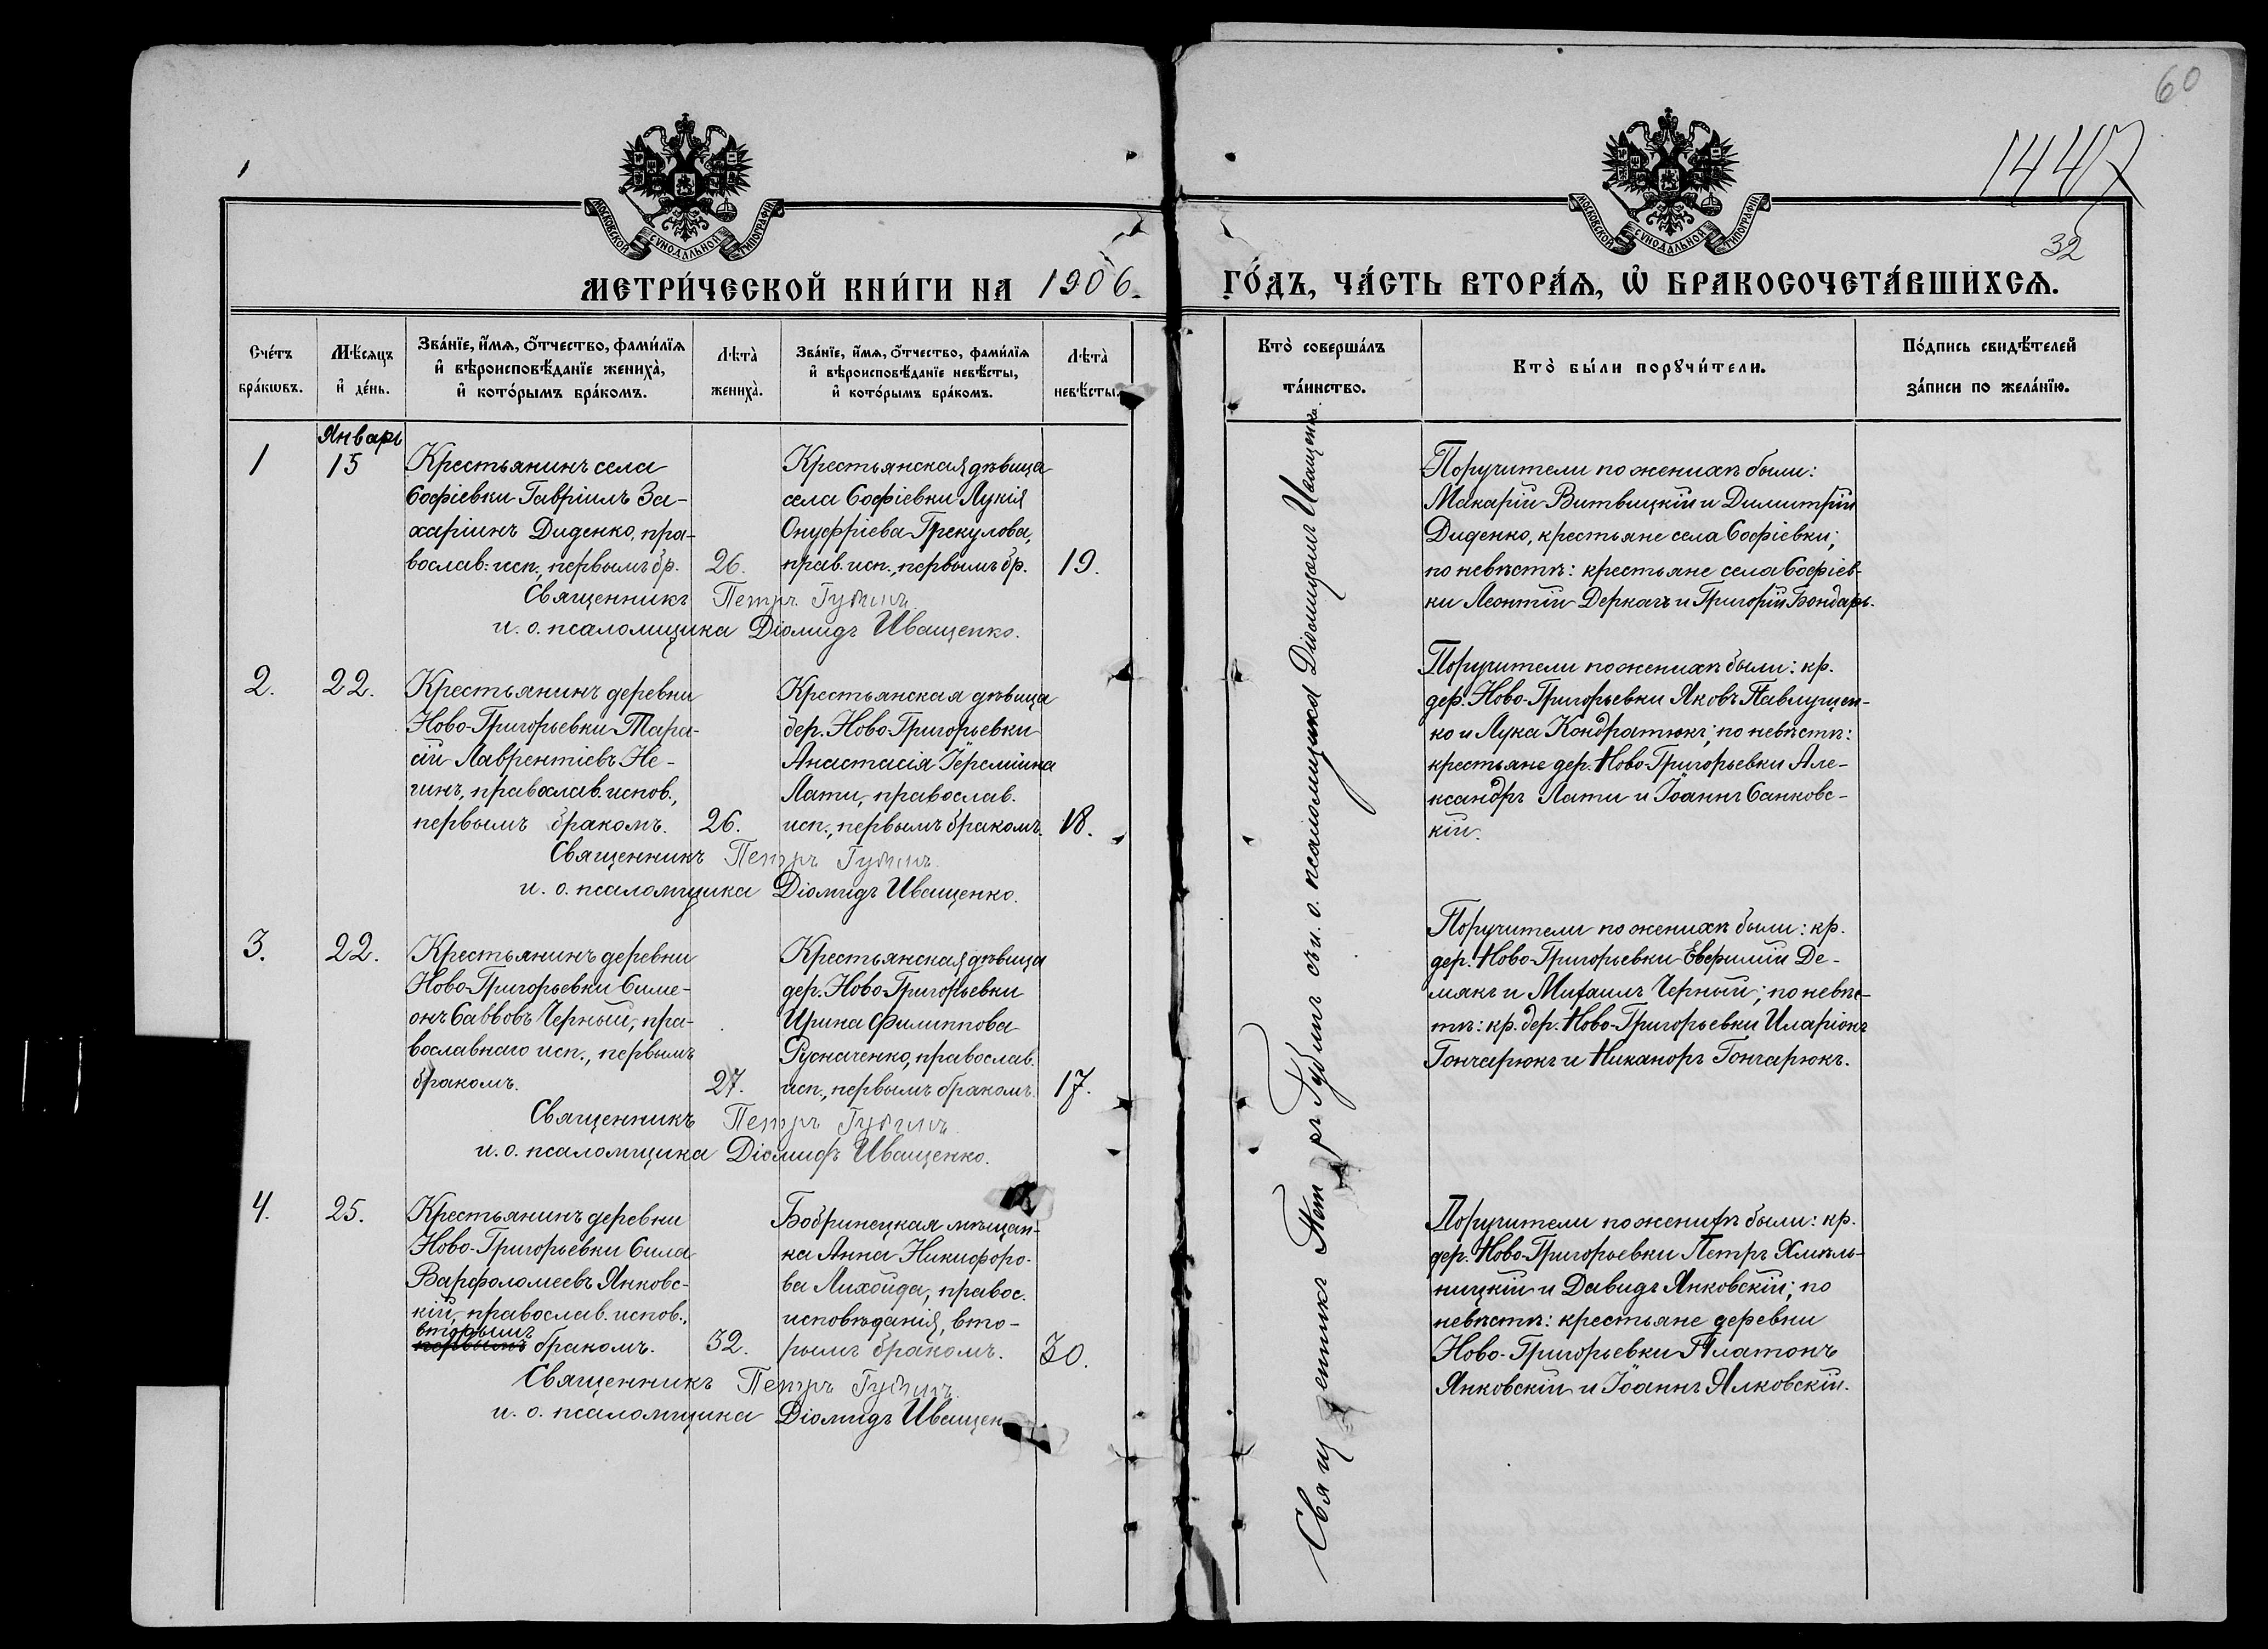 60
1447
32
МОСКОВСКОЙ СѴНОДАЛЬНОЙ ТИПОГРАФІИ
МОСКОВСКОЙ СѴНОДАЛЬНОЙ ТИПОГРАФІИ
МЕТРИ́ЧЕСКОЙ КНИ́ГИ НА 1906.
ГО́ДЪ, ЧА́СТЬ ВТОРА́Ѧ, Ѽ БРАКОСОЧЕТА́ВШИХСѦ.
Сче́тъ бра́кѡвъ.
Мѣ́сяцъ и҆ де́нь.
Зва́нїе, и҆́мѧ, ѻ҆́тчество, фами́лїѧ
и҆ вѣроисповѣ́данїе жениха̀,
и҆ кото́рымъ бра́комъ.
Лѣта̀ жениха̀.
Зва́нїе, и҆́мѧ, ѻ҆́тчество, фами́лїѧ
и҆ вѣроисповѣ́данїе невѣ́сты,
и҆ кото́рымъ бра́комъ.
Лѣта̀ невѣ́сты.
Кто̀ соверша́лъ та́инство.
Кто̀ бы́ли порꙋчи́тели.
По́дпись свидѣ́телей
за́писи по жела́нїю.
Январь
1
15
Крестьянинъ села
Софіевки Гавріилъ За-
харіинъ Диденко, пра-
вослав. исп., первымъ бр.
26.
Крестьянская дѣвица
села Софіевки Лукія
Онуфріева Грекулова,
прав. исп., первымъ бр.
19.
Священникъ Петръ Губинъ
и. о. псаломщика Діомидъ Иващенко.
Поручители по женихѣ были:
Макарій Витвицкій и Димитрій
Диденко, крестьяне села Софіевки;
по невѣстѣ: крестьяне села Софіев-
ки Леонтій Деркачъ и Григорій Бондарь.
2.
22.
Крестьянинъ деревни
Ново-Григорьевки Тара-
сій Лаврентіевъ Не-
чинъ, православ. испов.,
первымъ бракомъ.
26.
Крестьянская дѣвица
дер. Ново-Григорьевки
Анастасія Іереміина
Лати, православ.
исп., первымъ бракомъ.
18.
Священникъ Петръ Губинъ.
и. о. псаломщика Діомидъ Иващенко.
Поручители по женихѣ были: кр.
дер. Ново-Григорьевки Яковъ Павлущен-
ко и Лука Кондратюкъ; по невѣстѣ:
крестьяне дер. Ново-Григорьевки Але-
ксандръ Лати и Іоаннъ Санковс-
кій.
3.
22.
Крестьянинъ деревни
Ново-Григорьевки Симе-
онъ Саввовъ Черный, пра-
вославнаго исп., первымъ
бракомъ.
27.
Крестьянская дѣвица
дер. Ново-Григорьевки
Ирина Филиппова
Русначенко, православ.
исп., первымъ бракомъ.
17.
Священникъ Петръ Губинъ.
и. о. псаломщика Діомидъ Иващенко.
Поручители по женихѣ были: кр.
дер. Ново-Григорьевки Евфимій Де-
мякъ и Михаилъ Черный; по невѣс-
тѣ: кр. дер. Ново-Григорьевки Иларіонъ
Гончарюкъ и Никаноръ Гончарюкъ.
4.
25.
Крестьянинъ деревни
Ново-Григорьевки Сила
Варфоломеевъ Янковс-
кій, православ. испов.,
вторымъ
первымъ бракомъ.
32.
Бобринецкая мѣщан-
ка Анна Никифоро-
ва Лихойда, правос.
исповѣданія, вто-
рымъ бракомъ.
30.
Священникъ Петръ Губинъ.
и. о. псаломщика Діомидъ Иващен
Поручители по женихѣ были: кр.
дер. Ново-Григорьевки Петръ Хмѣль-
ницкій и Давидъ Янковскій; по
невѣстѣ: крестьяне деревни
Ново-Григорьевки Платонъ
Янковскій и Іоаннъ Ялковскій.
Священникъ Петръ Губинъ съ и. о. псаломщика Діомидомъ Иващенко.